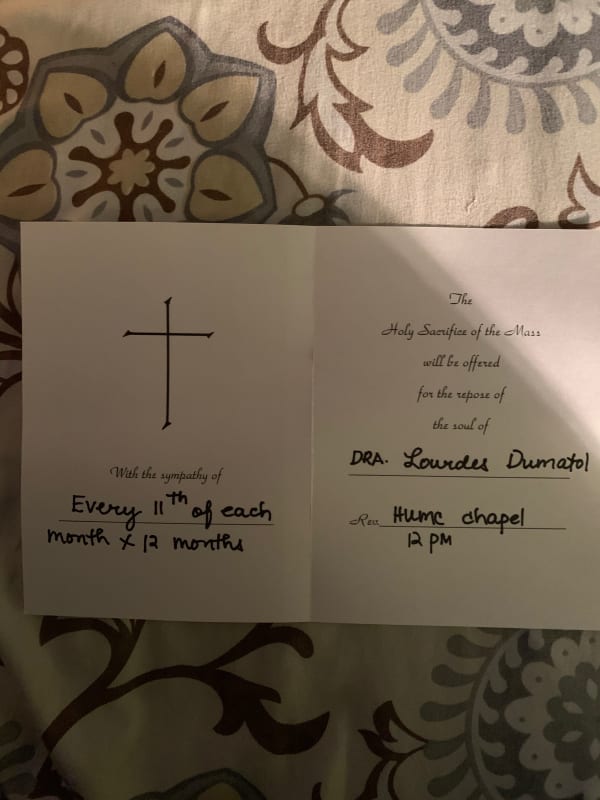 With the sympathy of
Every 11th of each
month x 12 months
The
Holy Sacrifice of the Mass
will be offered
for the repose of
the soul of
DRA. Lourdes Dumatol
Rev. HUMC chapel
12 PM